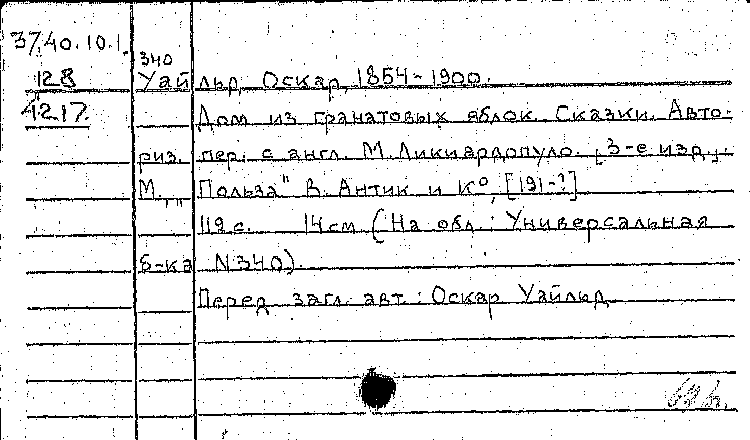 37.40.10.1.
340
128 Уайльд, Оскар, 1854-1900.
4217. Дом из гранатовых яблок. Сказки. Авто-
риз. пер. с англ. М. Ликиардопуло. [3-е изд.].
М., "Польза" В. Антик и К°, [191-?]
119 с. 14 см (На обл.: Универсальная
б-ка N340).
Перед загл. авт.: Оскар Уайльд